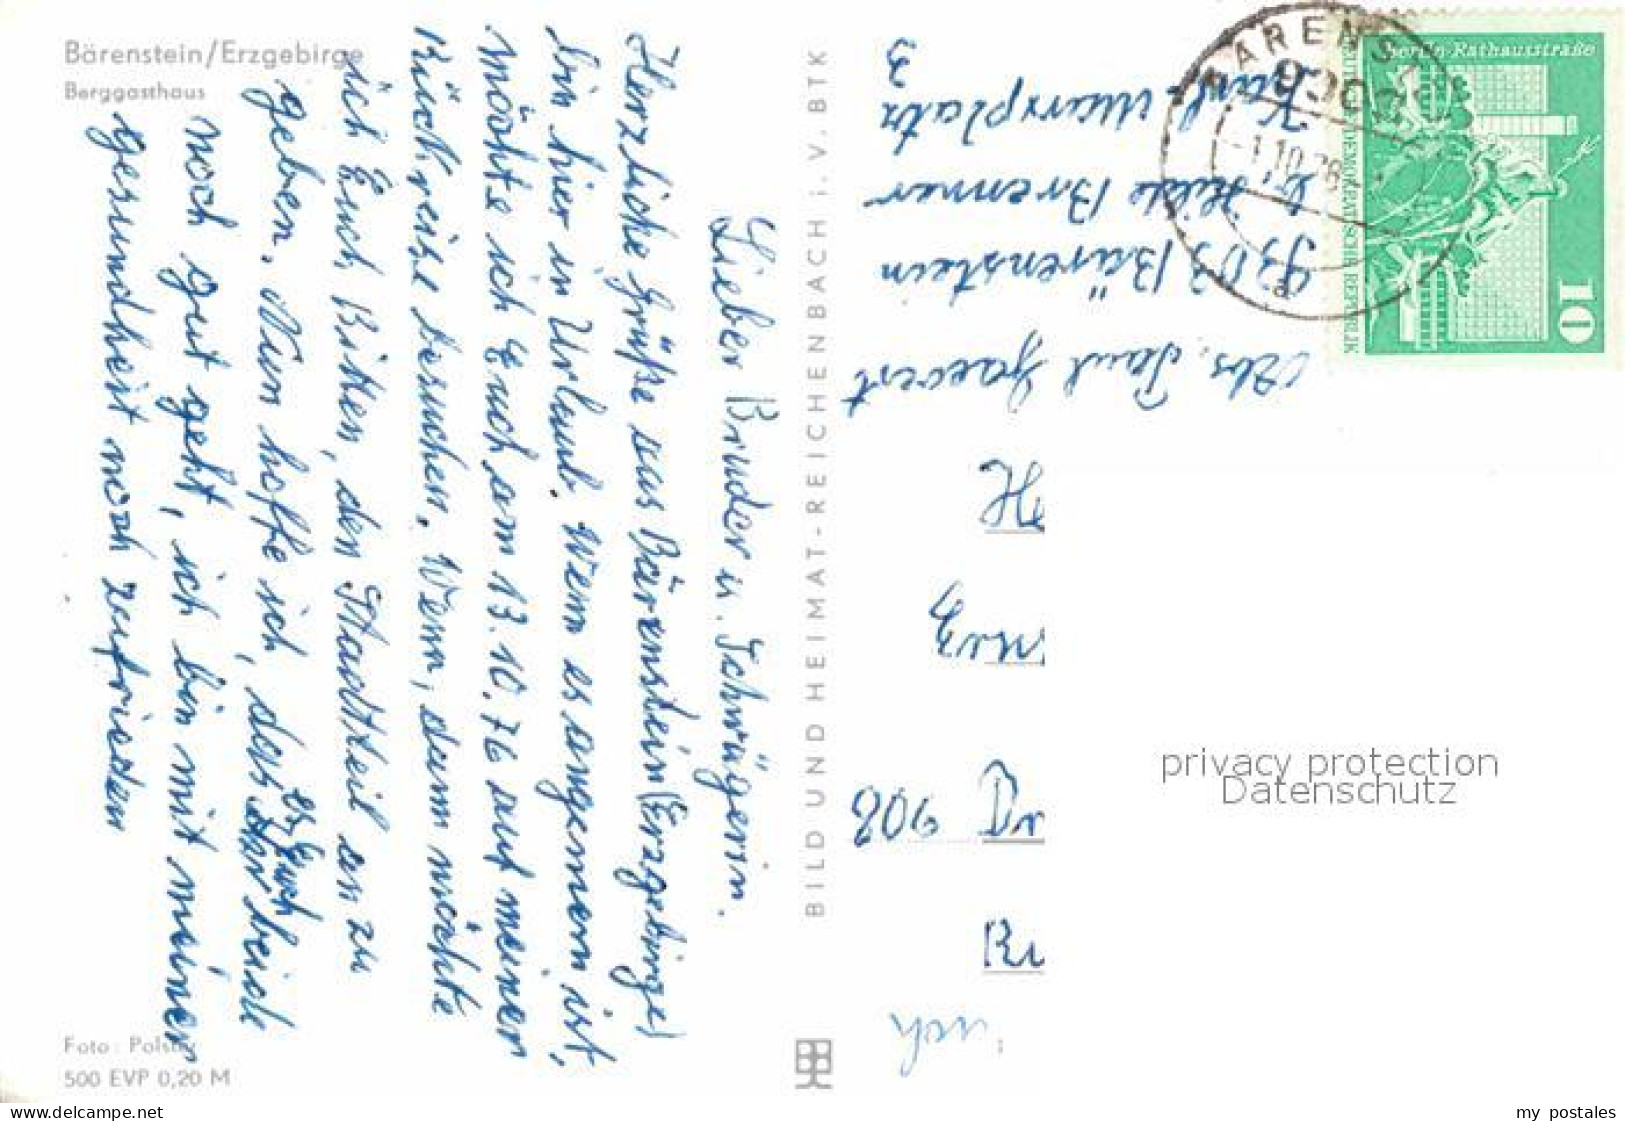 Bärenstein/Erzgebirge
Berggasthaus
Lieber Bruder u. Schwägerin.
Herzliche Grüße aus Bärenstein (Erzgebirge)
bin hier in Urlaub. Wenn es angenem ist,
möchte ich Euch am 13.10.76 auf meiner
Rückreise besuchen. Wenn, dann möchte
ich Euch Bitten, den Stadtteil an zu
geben. Nun hoffe ich, das es Euch
noch gut geht, ich bin mit meiner
gesundheit noch zufrieden
Foto: 
500 EVP 0,20 M
BILD UND HEIMAT-REICHENBACH i. V. BTK
Abs. Paul
9303 Bärenstein
Hilde Brenner
Karl-Marxplatz
3
908
BÄRENST
9303
-1.10.76
a
Berlin-Rathausstraße
10
privacy protection
Datenschutz
www.delcampe.net
my_postales